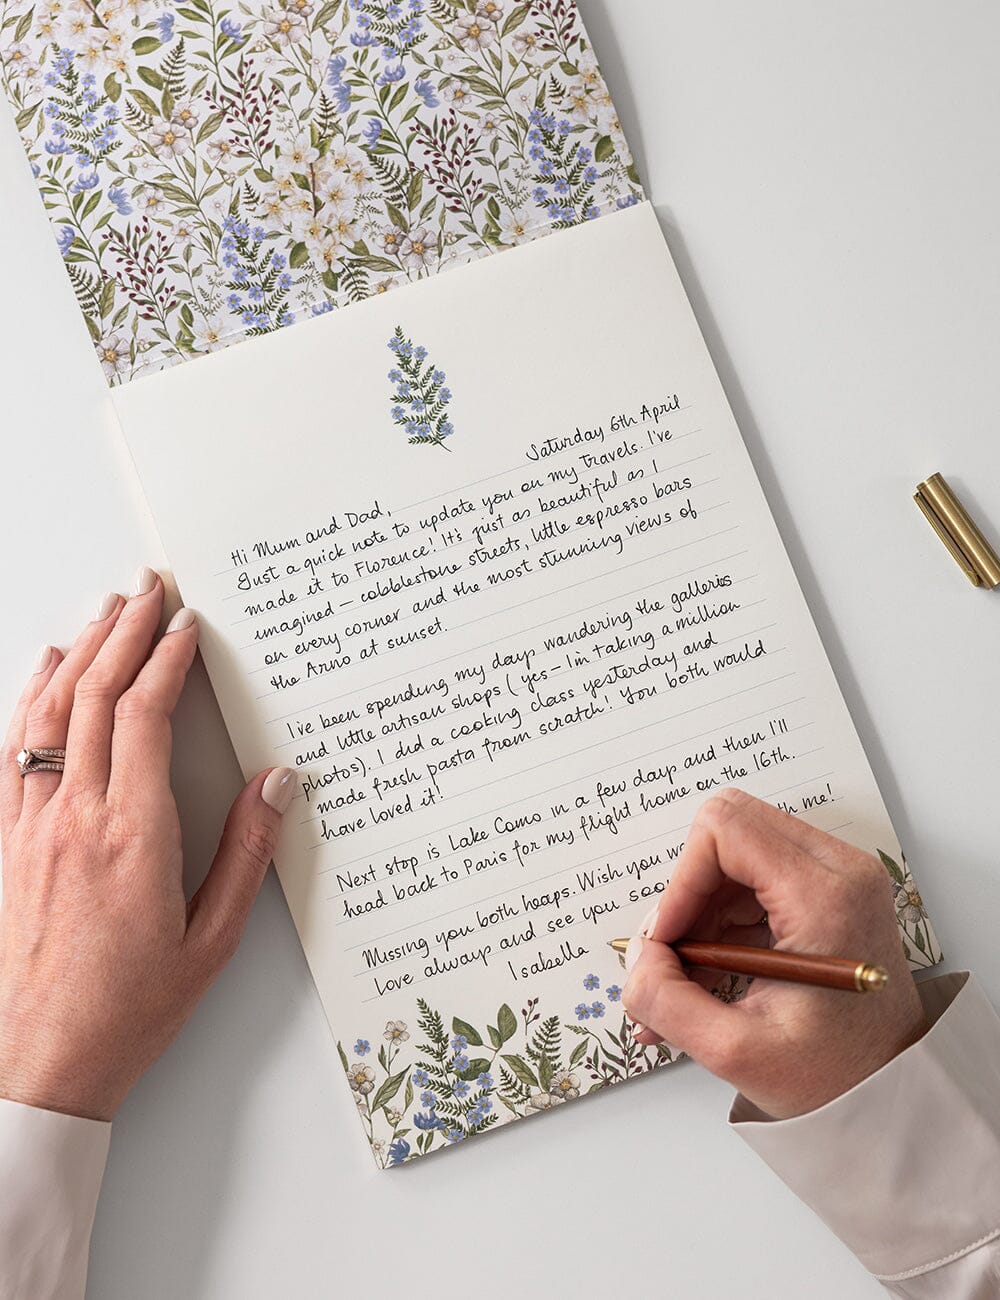 Saturday 6th April
Hi Mum and Dad,
Just a quick note to update you on my travels. I've
made it to Florence! It's just as beautiful as I
imagined – cobblestone streets, little espresso bars
on every corner and the most stunning views of
the Arno at sunset.
I've been spending my days wandering the galleries
and little artisan shops (yes – I'm taking a million
photos). I did a cooking class yesterday and
made fresh pasta from scratch! You both would
have loved it!
Next stop is Lake Como in a few days and then I'll
head back to Paris for my flight home on the 16th.
Missing you both heaps. Wish you me!
Love always and see you soon
Isabella